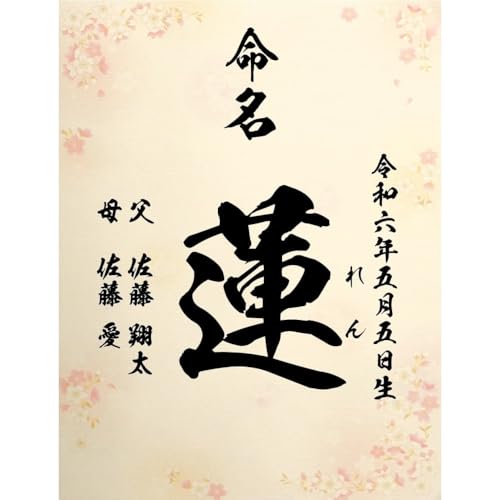 命名
令和六年五月五日生
れん
蓮
父 佐藤 翔太
母 佐藤 愛